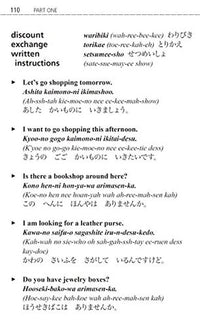 110 PART ONE
discount waribiki (wah-ree-bee-kee) わりびき
exchange torikae (toc-ree-kah-eh) とりかえ
written setsumee-sho せつめいしょ
instructions (sate-sue-may-ee show)
▶ Let's go shopping tomorrow.
Ashita kaimono-ni ikimashoo.
(Ah-ssh-tah kie-moc-no nee ee-kee-mah-show)
あした かいものに いきましょう。
▶ I want to go shopping this afternoon.
Kyoo-no gogo kaimono-ni ikitai-desu.
(K'yoe no go-go kie-moc-no nee ee-kee-tie dess)
きょうの ごご かいものに いきたいです。
▶ Is there a bookshop around here?
Kono hen-ni hon-ya-wa arimasen-ka.
(Koe-no hen nee hoan-yah wah ah-ree-mah-sen kah)
この へんに ほんやは ありませんか。
▶ I am looking for a leather purse.
Kawa-no saifu-o sagashite iru-n-desu-kedo.
(Kah-wah no sie-who oh sah-gah-ssh-tay ee-ruen dess kay-doe)
かわの さいふを さがして いるんですけど。
▶ Do you have jewelry boxes?
Hooseki-bako-wa arimasen-ka.
(Hoe-say-kee bah-koe wah ah-ree-mah-sen kah)
ほうせきばこは ありませんか。